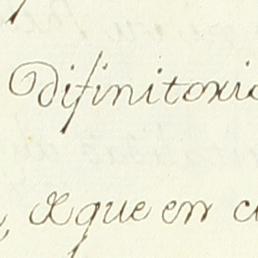 Difinitorio
, æque en c